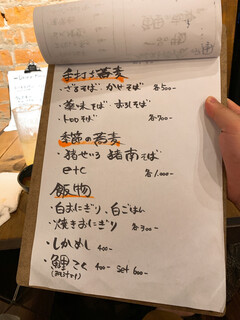 手打ち蕎麦
・ざるそば、かけそば 各500-
・薬味そば おろしそば
・トロロそば 各700-
季節の蕎麦
・猪せいろ 猪南そば
etc 各1,000-
飯物
・白おにぎり、白ごはん
・焼きおにぎり 各300-
・しかめし 400-
・鯉こく 400- set 600-